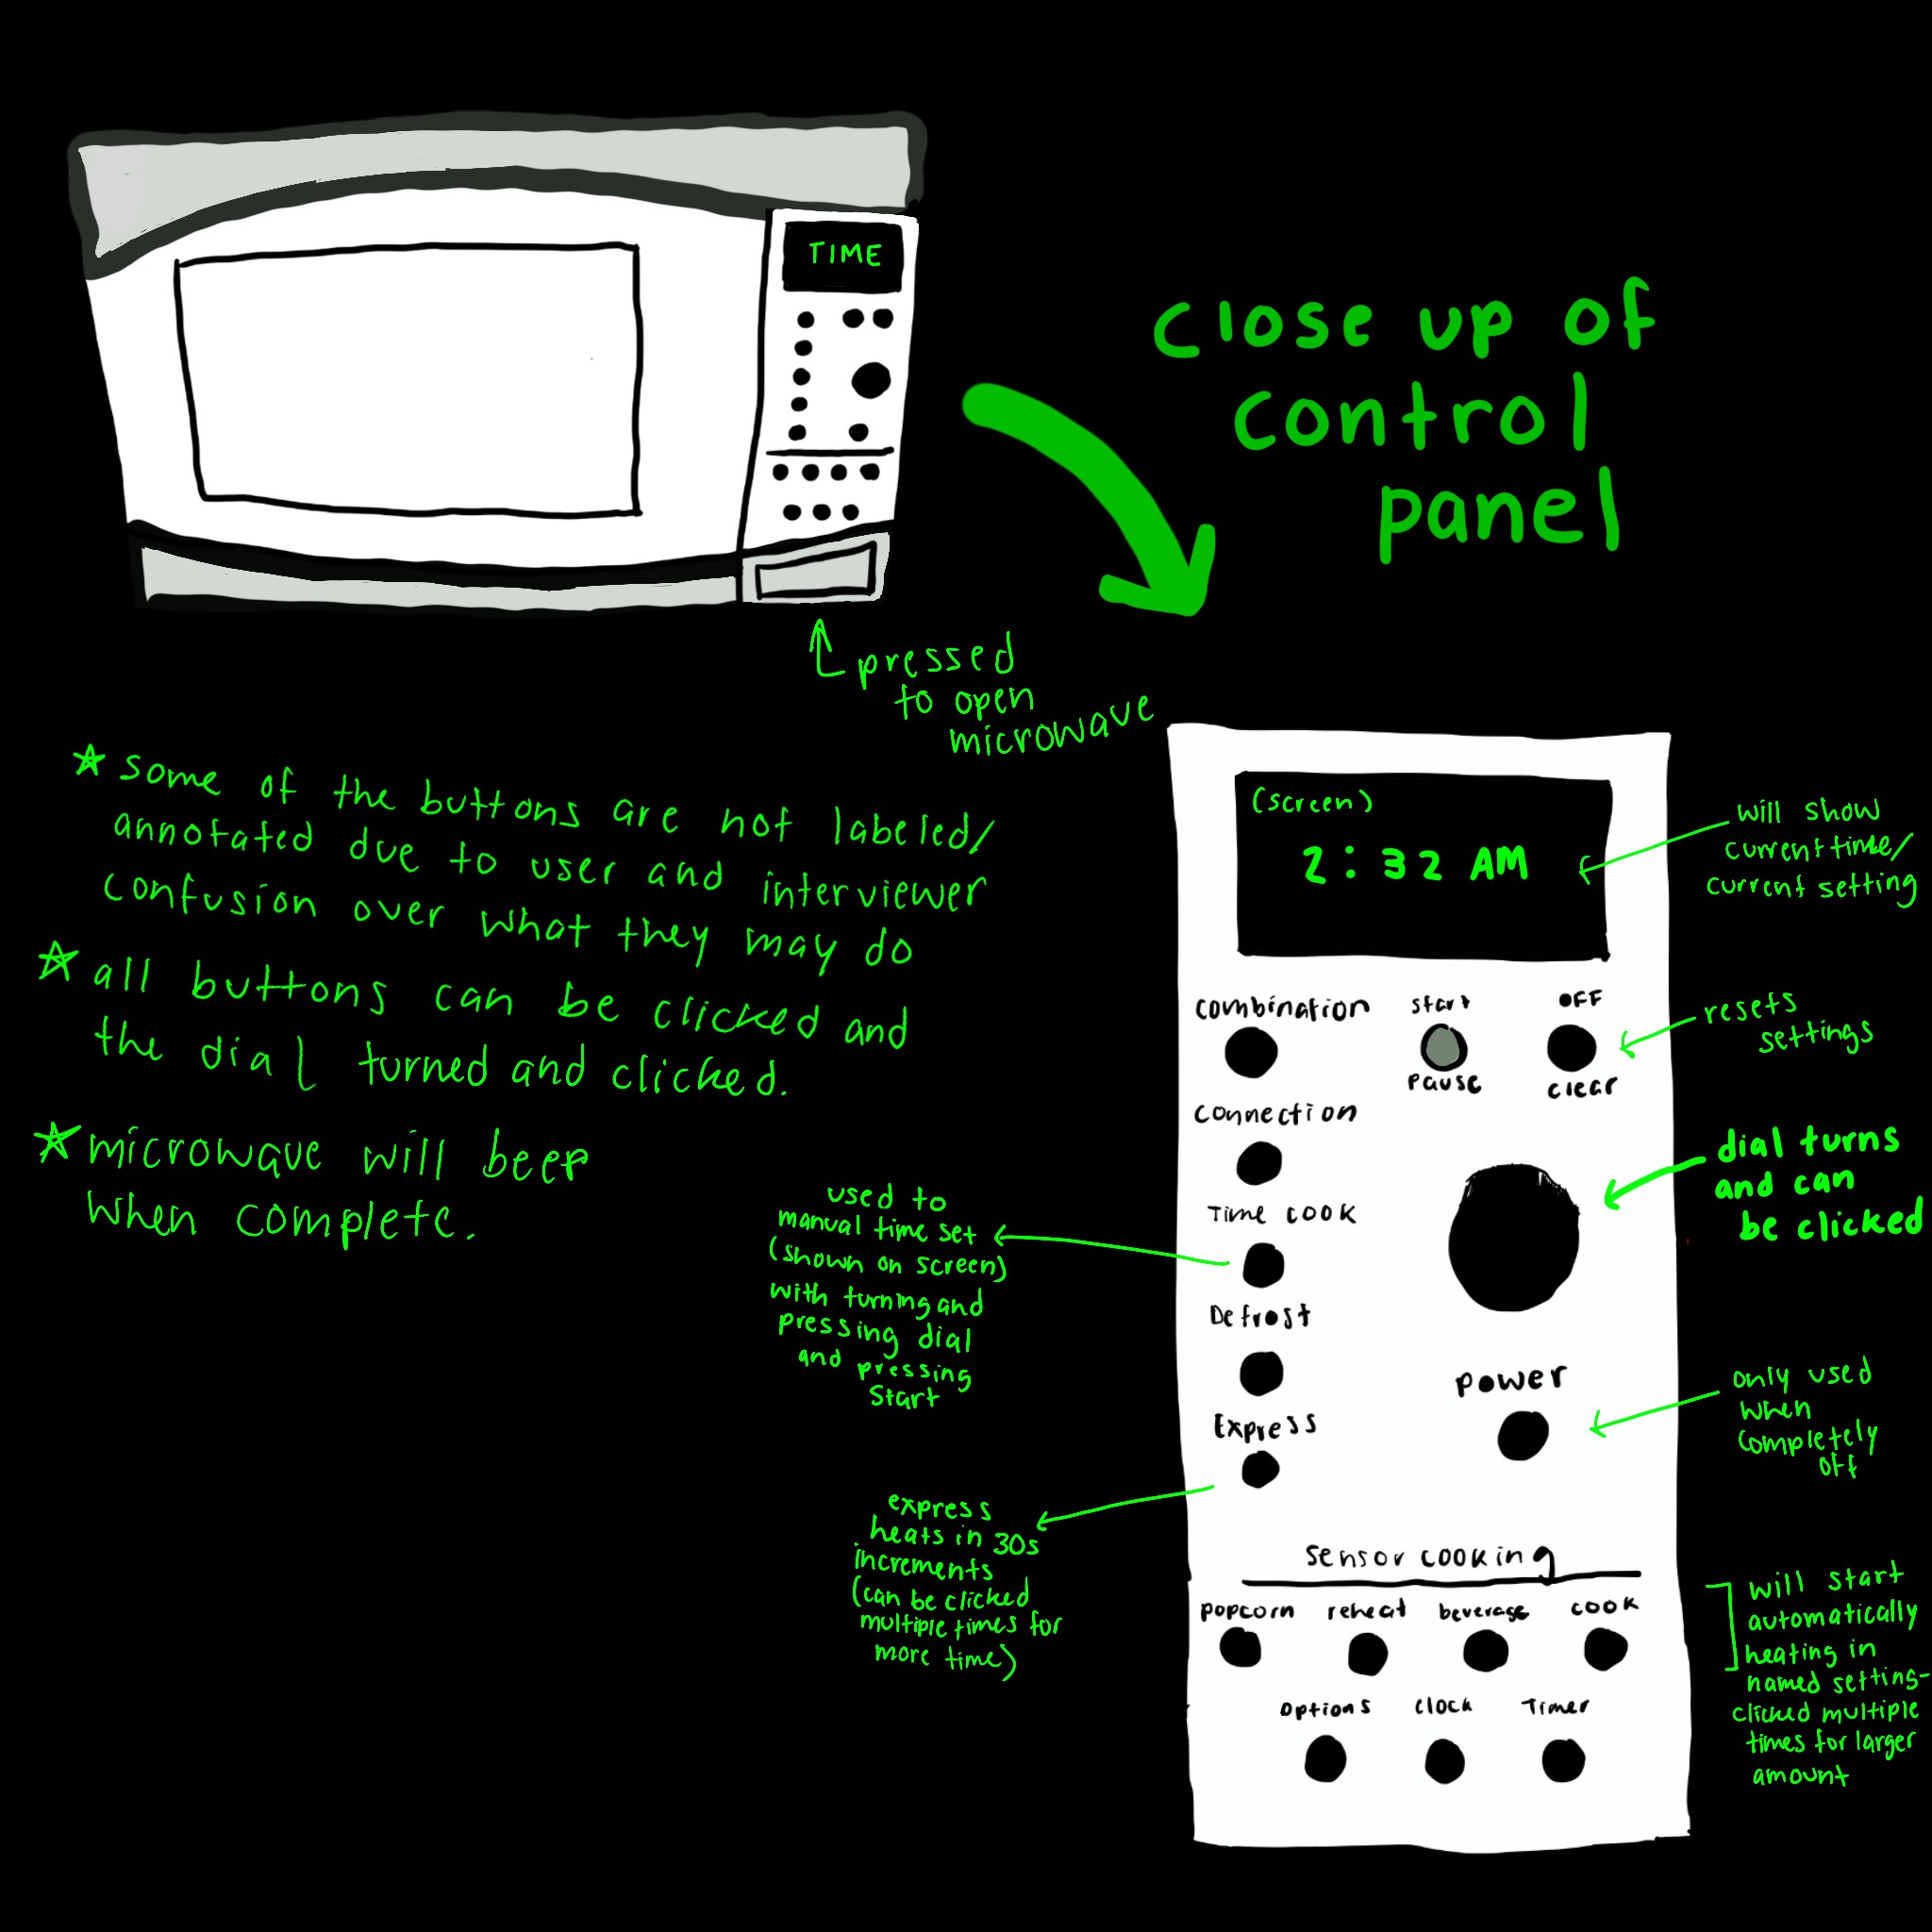 TIME
close up of
control
panel
pressed
to open
microwave
some of the buttons are not labeled/
annotated due to user and interviewer
confusion over what they may do
all buttons can be clicked and
the dial turned and clicked.
microwave will beep
when complete.
(screen)
2:32 AM
will show
current time/
current setting
combination
start
OFF
pause
clear
resets
settings
connection
dial turns
and can
be clicked
Time cook
used to
manual time set
(shown on screen)
with turning and
pressing dial
and pressing
start
Defrost
power
only used
when
completely
off
Express
express
heats in 30s
increments
(can be clicked
multiple times for
more time)
sensor cooking
popcorn reheat beverage cook
options clock Timer
will start
automatically
heating in
named setting-
clicked multiple
times for larger
amount